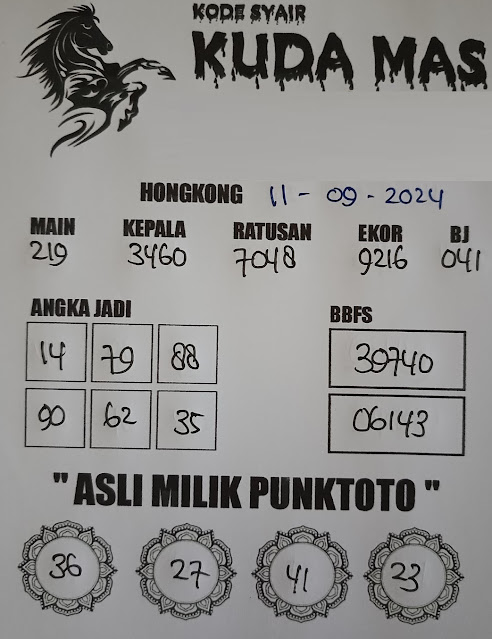 KODE SYAIR
KUDA MAS
HONGKONG 11 - 09 - 2024
MAIN KEPALA RATUSAN EKOR BJ
219 3460 7048 9216 041
ANGKA JADI BBFS
14 79 88 39740
90 62 35 06143
" ASLI MILIK PUNKTOTO "
36 27 41 23